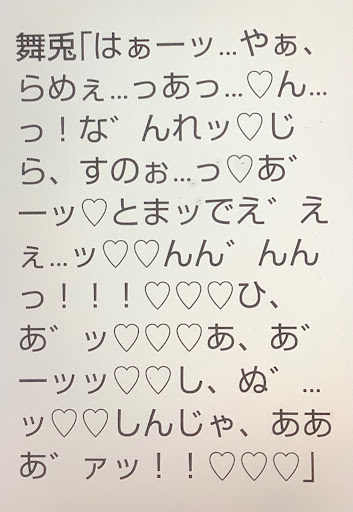 舞兎「はぁーッ…やぁ、
らめぇ…っあっ…♡ん…
っ！な゛んれッ♡じ
ら、すのぉ…っ♡あ゛
ーッ♡とまッでえ゛え
ぇ…ッ♡♡んん゛んん
っ！！！♡♡♡ひ、
あ゛ッ♡♡♡あ、あ゛
ーッッ♡♡し、ぬ゛…
ッ♡♡しんじゃ、ああ
あ゛ァッ！！♡♡♡」